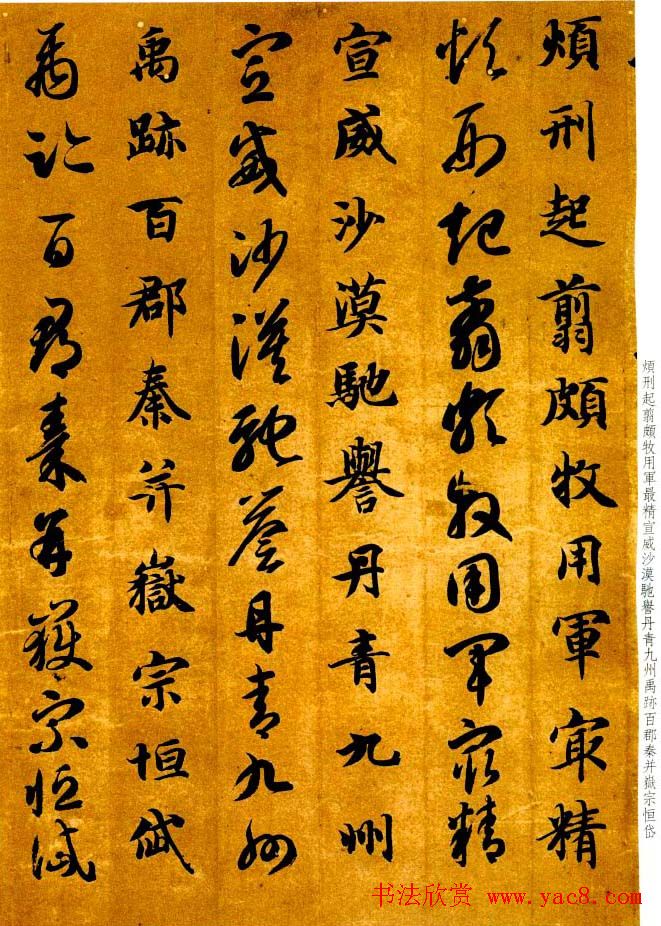 煩刑起翦頗牧用軍㝡精
煩刑起翦頗牧用軍㝡精
宣威沙漠馳譽丹青九州
宣威沙漠馳譽丹青九州
禹跡百郡秦并嶽宗恒岱
禹跡百郡秦并嶽宗恒岱
煩刑起翦頗牧用軍最精宣威沙漠馳譽丹青九州禹跡百郡秦并嶽宗恒岱
书法欣赏 www.yac8.com